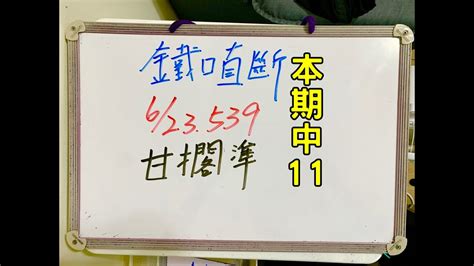 鐵口直斷
6/23.539
甘擱準
本期中11